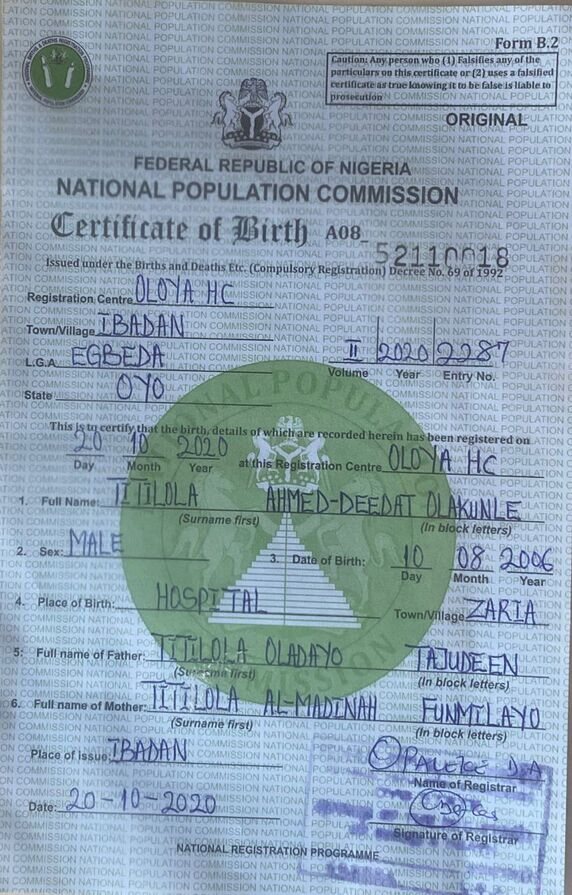 Form B.2
Caution: Any person who (1) Falsifies any of the
particulars on this certificate or (2) uses a falsified
certificate as true knowing it to be false is liable to
prosecution
ORIGINAL
FEDERAL REPUBLIC OF NIGERIA
NATIONAL POPULATION COMMISSION
Certificate of Birth A08_ 52110018
Issued under the Births and Deaths Etc. (Compulsory Registration) Decree No. 69 of 1992
Registration Centre OLOYA HC
Town/Village IBADAN
L.G.A. EGBEDA II 2020 2287
Volume Year Entry No.
State OYO
This is to certify that the birth, details of which are recorded herein has been registered on
20 10 2020 at this Registration Centre OLOYA HC
Day Month Year
1. Full Name: TITILOLA AHMED-DEEDAT OLAKUNLE
(Surname first) (In block letters)
2. Sex: MALE 3. Date of Birth: 10 08 2006
Day Month Year
4. Place of Birth: HOSPITAL Town/Village ZARIA
5: Full name of Father: TITILOLA OLADAYO TAJUDEEN
(Surname first) (In block letters)
6. Full name of Mother: TITILOLA AL-MADINAH FUNMILAYO
(Surname first) (In block letters)
Place of issue: IBADAN
Name of Registrar
Date: 20-10-2020
Signature of Registrar
NATIONAL REGISTRATION PROGRAMME